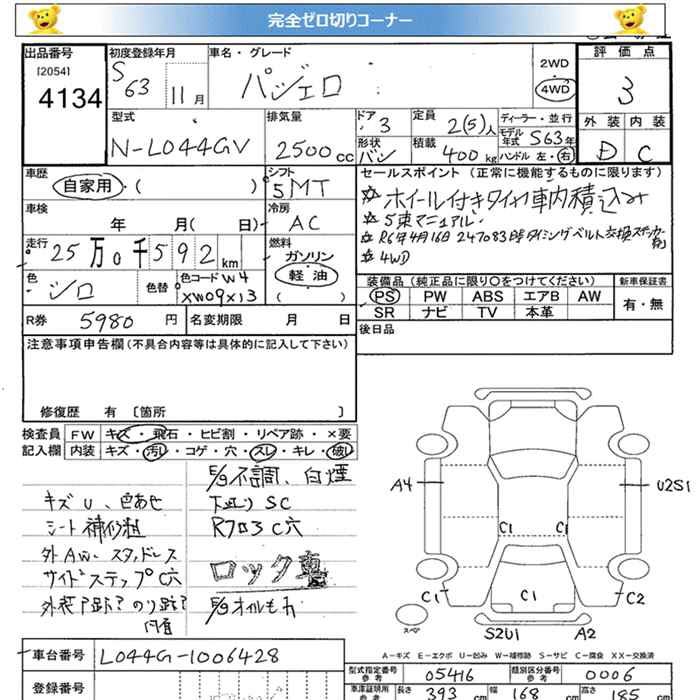 完全ゼロ切りコーナー
出品番号 初度登録年月 車名・グレード 評価点
[2054] 4134 S63 11月 パジェロ 2WD 4WD 3
型式 排気量 ドア 定員 ディーラー・並行 外装 内装
N-L044GV 2500cc 3 2(5)人 モデル年式 S63年 D C
形状 バン 積載 400kg ハンドル 左・右
車歴 シフト セールスポイント (正常に機能するものに限ります)
自家用・( ) 5MT ☆ホイール付きタイヤ4車内積込み
車検 冷房 ☆5速マニュアル.
年 月( 日) AC ☆R6年4月16日 247083 タイミングベルト交換ステッカー
☆4WD
走行 25万0千592km 燃料 ガソリン 軽油 ( )
色 シロ 色替 色コード W4 XW09X13
装備品 (純正品に限り〇をつけてください) 新車保証書
PS PW ABS エアB AW 有・無
SR ナビ TV 本革
R券 5980円 名変期限 月 日 後日品
注意事項申告欄(不具合内容等は具体的に記入して下さい)
修復歴 有 〔箇所 〕
検査員記入欄 FW キズ・飛石・ヒビ割・リペア跡・×要
内装 キズ・汚れ・コゲ・穴・スレ・キレ・破れ
E/g不調、白煙
キズU、色あせ 下廻りSC
シート補修粗 Rフロ3C穴
外AW、スタッドレス
サイドステップC穴 ロック車
E/gオイルもれ
A4 U2S1
C1 C1
C1 C1 C2
スペア S2U1 A2
A－キズ E－エクボ U－凹み W－補修跡 S－サビ C－腐食 XX－交換済
車台番号 L044G-1006428
型式指定番号 参考 05416 類別区分番号 参考 0006
登録番号 車庫証明用 参考 長さ 393cm 幅 168cm 高さ 185cm